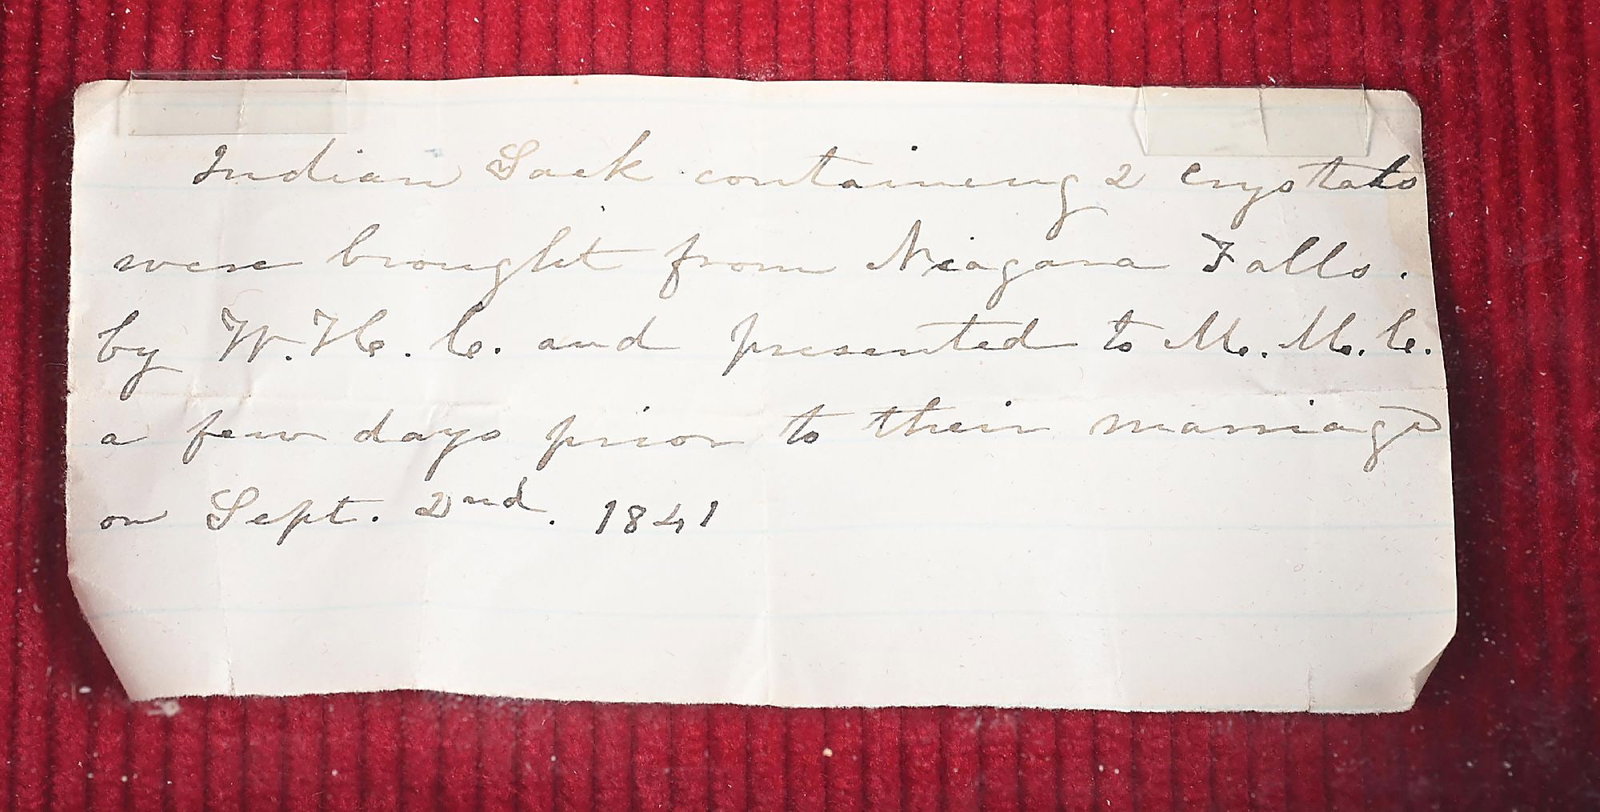 Indian Sack containing 2 Crystals
were brought from Niagara Falls.
by W. H. C. and presented to M. M. C.
a few days prior to their marriage
on Sept. 2nd. 1841